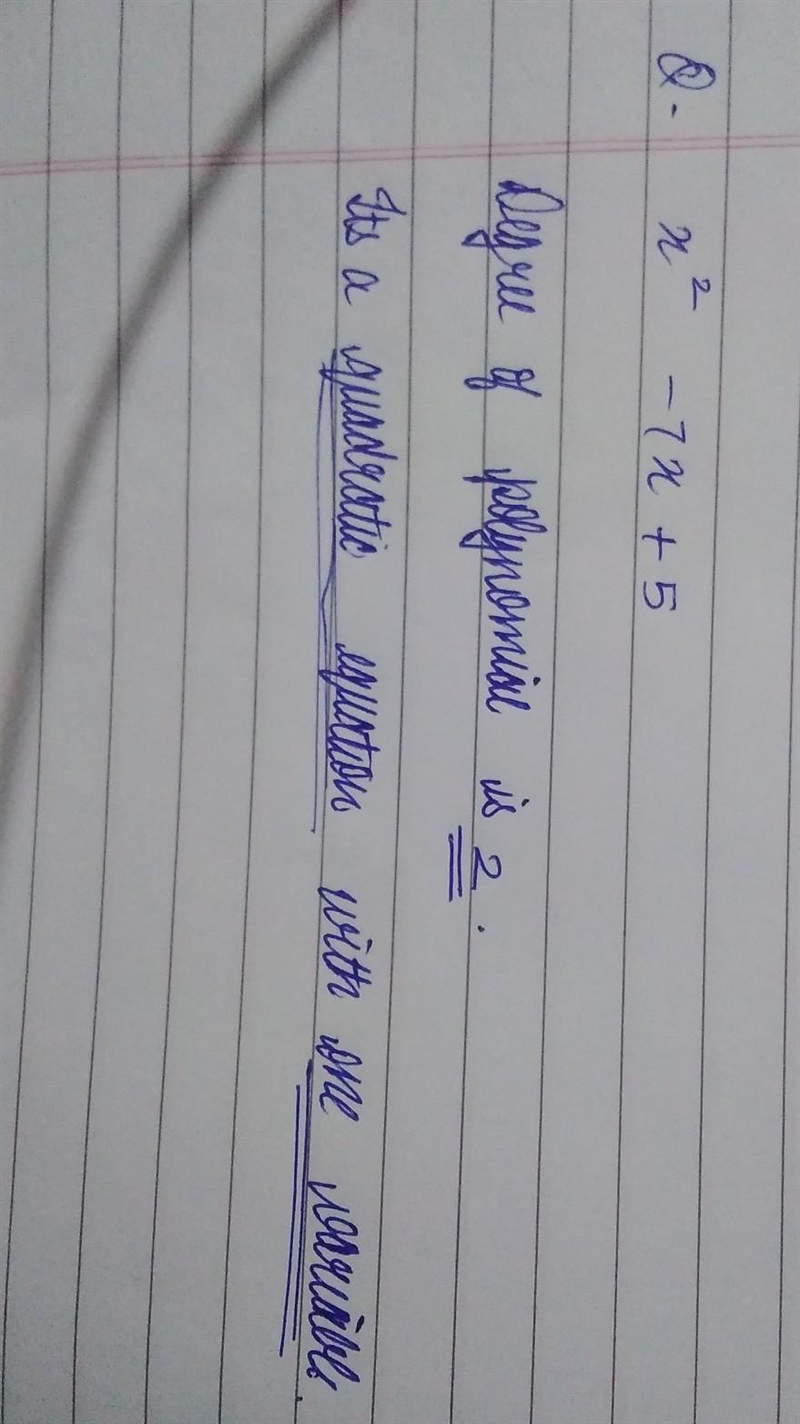 Q. x² - 7x + 5
Degree of polynomial is 2.
Its a quadratic equation with one variable.